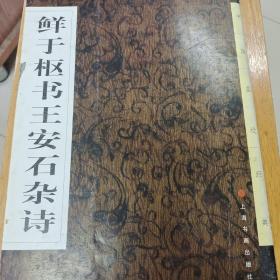 鲜于枢书王安石杂诗
上海书画出版社